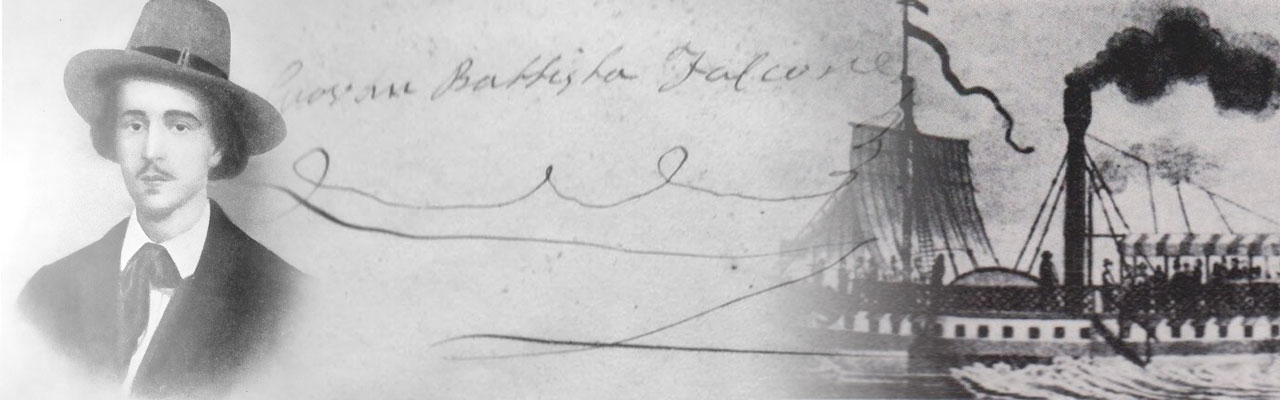 Giovan Battista Falcone